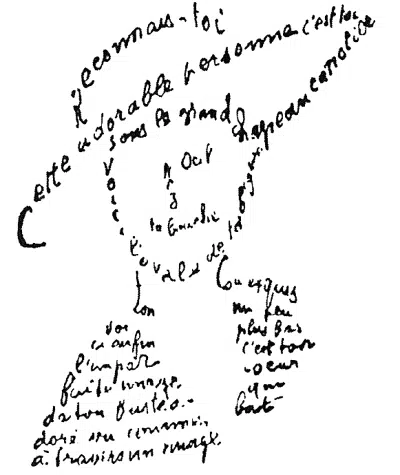 Reconnais-toi
Cette adorable personne c'est toi
Sous le grand chapeau canotier
Œil
Nez
La bouche
Voici l'ovale de ta figure
Ton
Cou exquis
Voi
ci enfin
l'impar
faite image
de ton buste a
doré vu comme
à travers un nuage
un peu
plus bas
c'est ton
coeur
qui
bat